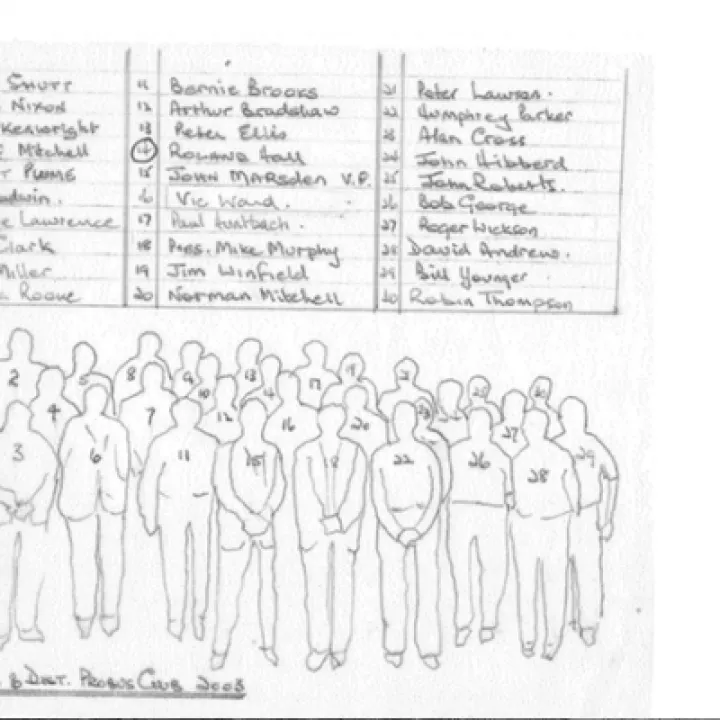 Shutt 11 Bernie Brooks 21 Peter Lawson.
Nixon 12 Arthur Bradshaw 22 Humphrey Parker
kenwright 13 Peter Ellis 23 Alan Cross
Mitchell 14 Roland Hall 24 John Hibberd
PLUME 15 JOHN MARSDEN V.P. 25 John Roberts.
odwin. 16 Vic Ward. 26 Bob George
e Lawrence 17 Paul Huntbach. 27 Roger Wickson
Clark 18 Pres. Mike Murphy 28 David Andrew.
Miller 19 Jim Winfield 29 Bill Younger
Roove 20 Norman Mitchell 30 Robin Thompson
2 5 8 9 10 13 14 17 19 21 25 30
4 7 12 16 20 23 27
3 6 11 15 18 22 26 28 29
& DIST. PROBUS CLUB 2003